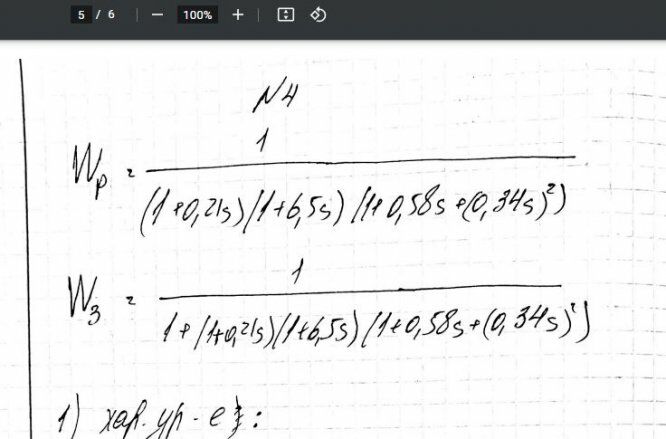 5 / 6 — 100% +
N4
Wp = 1 / (1+0,21s)(1+6,5s)(1+0,58s+(0,34s)²)
Wз = 1 / 1+(1+0,21s)(1+6,5s)(1+0,58s+(0,34s)²)
1) хар. ур-е з: